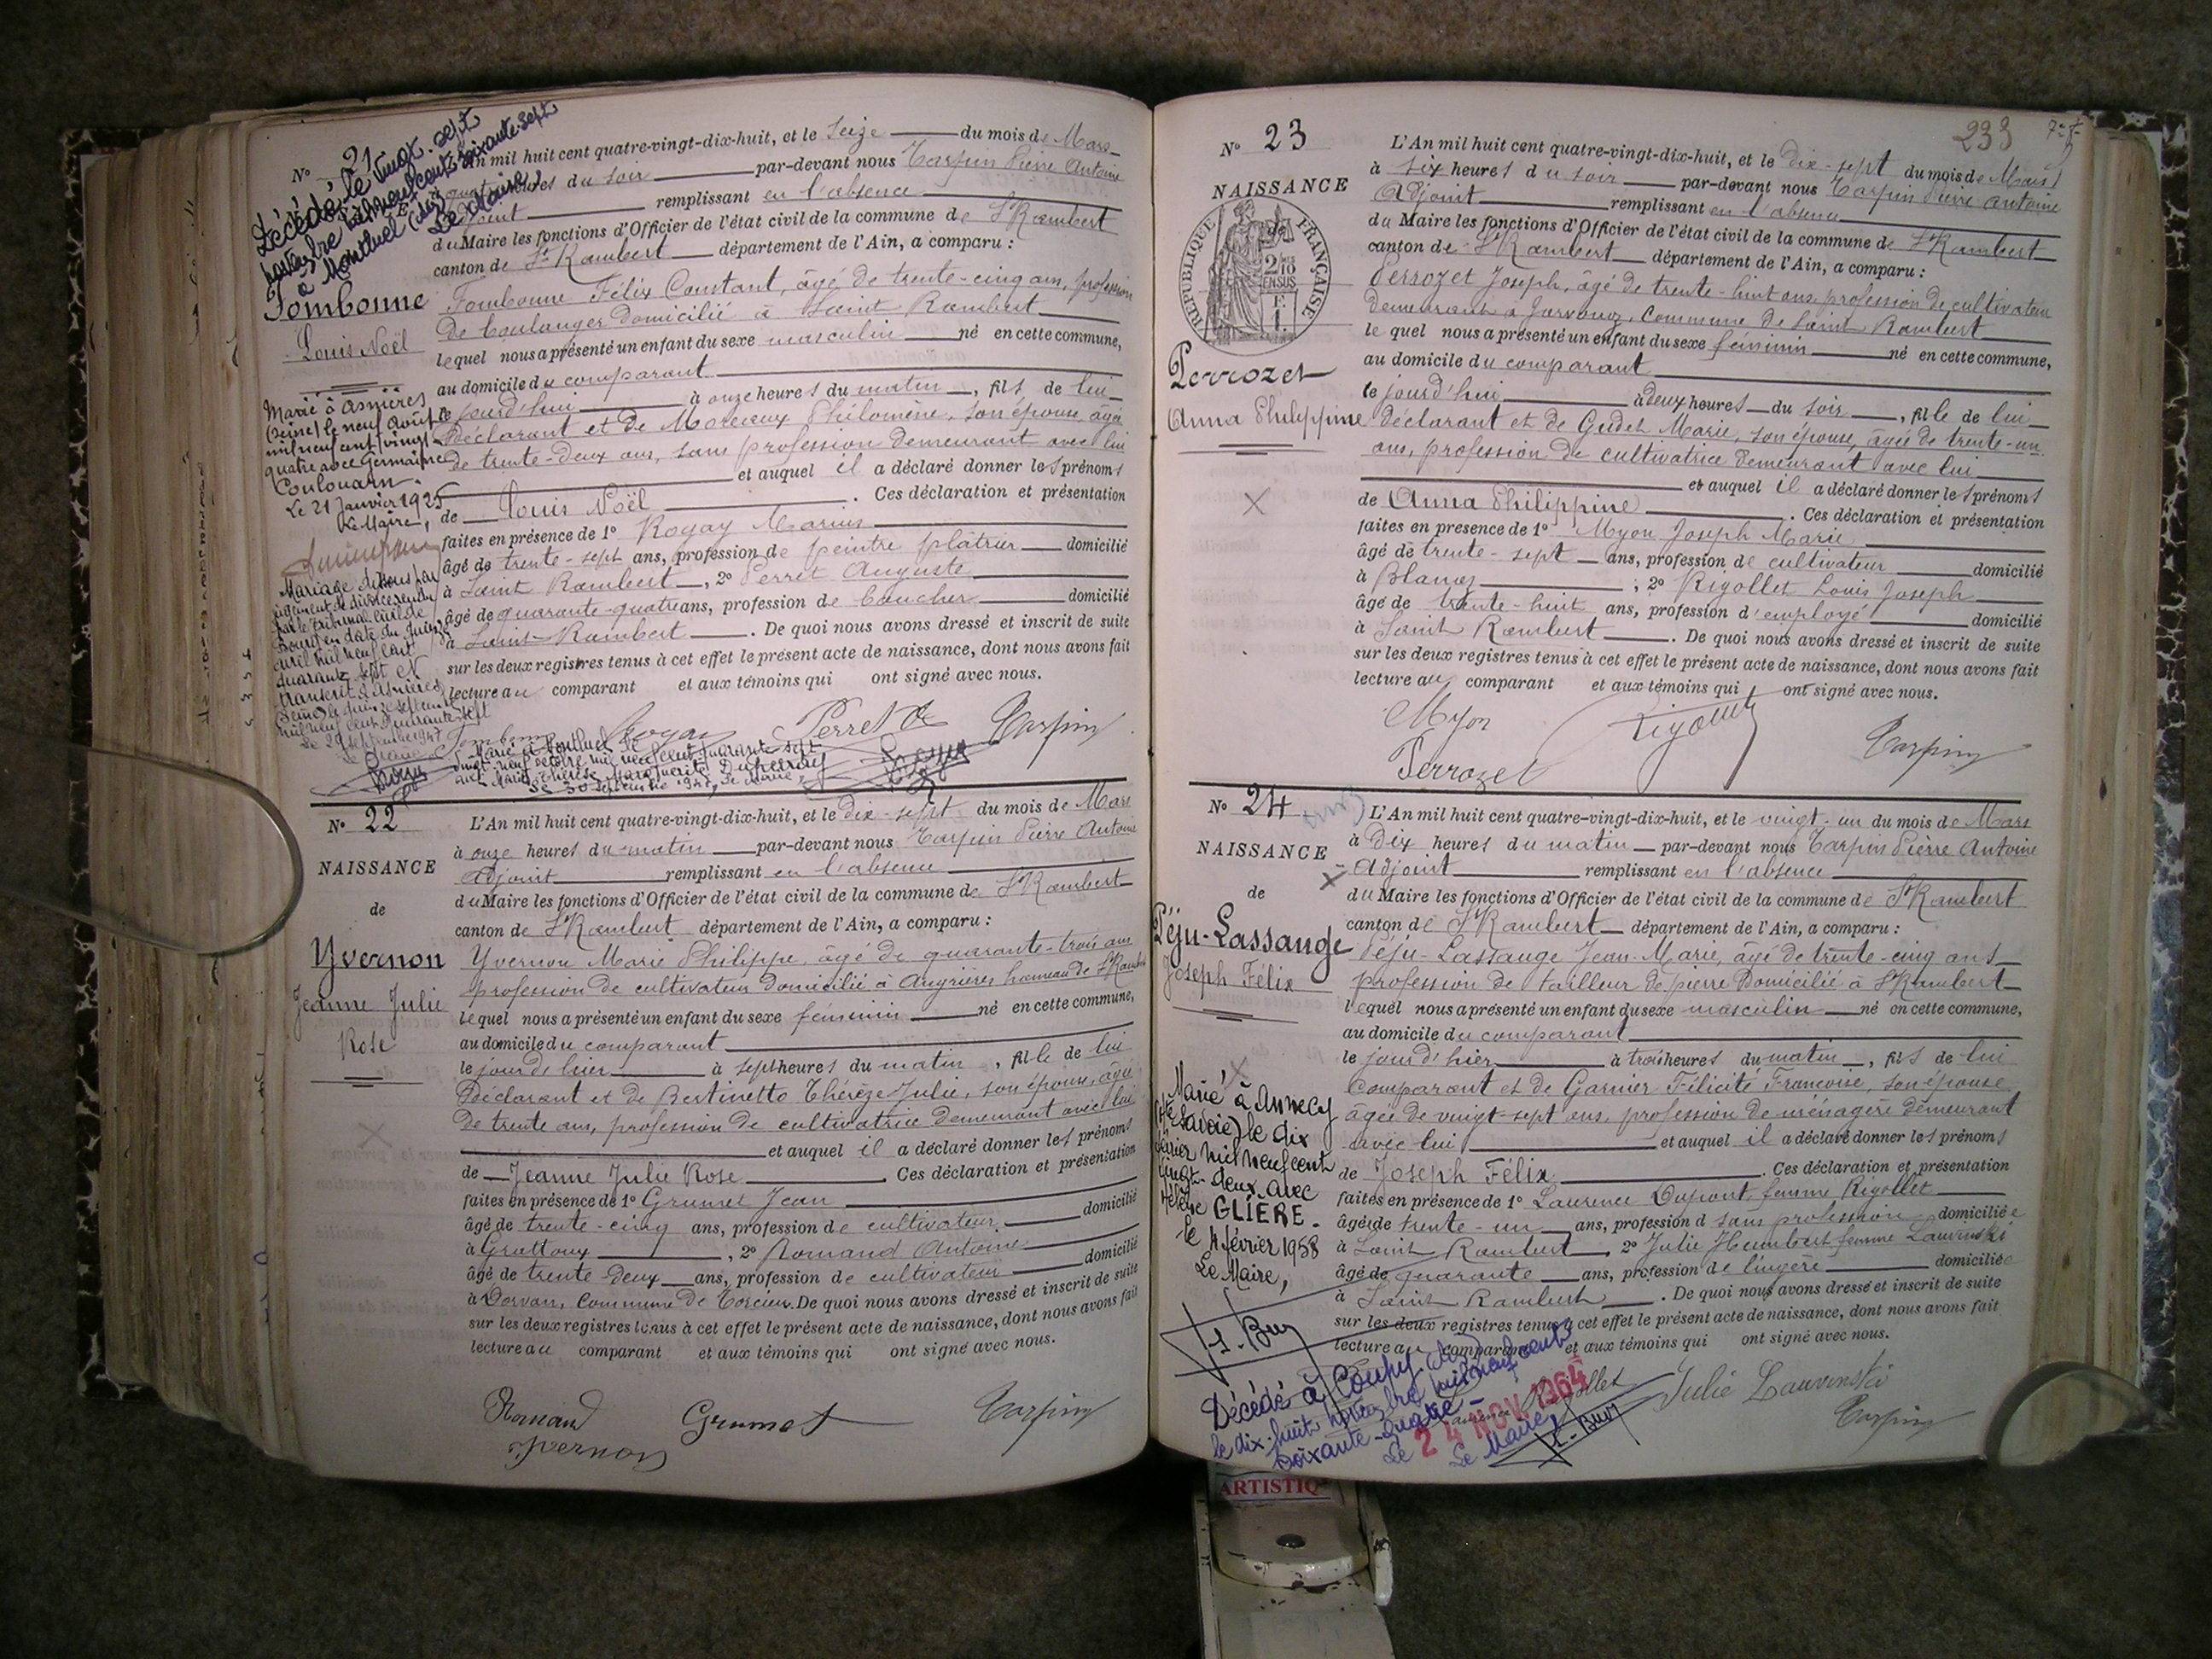 N° 21
Décédé le vingt-sept
à Montluel (Ain)
Le Maire,
Tombonne
Louis Noël
Marié à Asnières
(Seine) le neuf Août
mil neuf cent vingt-
quatre avec Germaine
Coulouarn.
Le 21 Janvier 1925
Le Maire,
Mariage dissous par
jugement de divorce rendu
par le Tribunal civil de
avril mil neuf cent
quarante sept et
transcrit à Asnières
(Seine) le quinze septembre
mil neuf cent quarante sept
L'An mil huit cent quatre-vingt-dix-huit, et le seize du mois de Mars
à quatre heures du soir par-devant nous Carpin Pierre Antoine
Adjoint remplissant en l'absence
du Maire les fonctions d'Officier de l'état civil de la commune de St Rambert
canton de St Rambert département de l'Ain, a comparu :
Tombonne Félix Constant, âgé de trente-cinq ans, profession
de boulanger domicilié à Saint Rambert
lequel nous a présenté un enfant du sexe masculin né en cette commune,
au domicile du comparant
le jourd'hui à onze heures du matin, fils de lui
déclarant et de Philomène, son épouse, âgée
de trente-deux ans, sans profession demeurant avec lui
et auquel il a déclaré donner les prénoms
de Louis Noël. Ces déclaration et présentation
faites en présence de 1° Rogay Marius
âgé de trente-sept ans, profession de peintre plâtrier domicilié
à Saint Rambert, 2° Perret Auguste
âgé de quarante-quatre ans, profession de boucher domicilié
à Saint-Rambert. De quoi nous avons dressé et inscrit de suite
sur les deux registres tenus à cet effet le présent acte de naissance, dont nous avons fait
lecture au comparant et aux témoins qui ont signé avec nous.
Rogay Perret Carpin
Marié à Montluel le
avec Marie Thérèse Marguerite
N° 22
NAISSANCE
de
Yvernon
Jeanne Julie
Rose
L'An mil huit cent quatre-vingt-dix-huit, et le dix-sept du mois de Mars
à onze heures du matin par-devant nous Carpin Pierre Antoine
Adjoint remplissant en l'absence
du Maire les fonctions d'Officier de l'état civil de la commune de St Rambert
canton de St Rambert département de l'Ain, a comparu :
Yvernon Marie Philippe, âgé de quarante-trois ans
profession de cultivateur domicilié à Angrières hameau de St Rambert
lequel nous a présenté un enfant du sexe féminin né en cette commune,
au domicile du comparant
le jour de hier à sept heures du matin, fille de lui
Déclarant et de Bertinetto Thérèze Julie, son épouse, âgée
de trente ans, profession de cultivatrice demeurant avec lui
et auquel il a déclaré donner les prénoms
de Jeanne Julie Rose. Ces déclaration et présentation
faites en présence de 1° Grumet Jean
âgé de trente-cinq ans, profession de cultivateur domicilié
à Grattoux, 2° Romand Antoine
âgé de trente-deux ans, profession de cultivateur domicilié
à Dorvan, Commune de Torcieu. De quoi nous avons dressé et inscrit de suite
sur les deux registres tenus à cet effet le présent acte de naissance, dont nous avons fait
lecture au comparant et aux témoins qui ont signé avec nous.
Romand Grumet Carpin
Yvernon
233
N° 23
NAISSANCE
RÉPUBLIQUE FRANÇAISE
Perrozet
Anna Philippine
L'An mil huit cent quatre-vingt-dix-huit, et le dix-sept du mois de Mars
à six heures du soir par-devant nous Carpin Pierre Antoine
Adjoint remplissant en l'absence
du Maire les fonctions d'Officier de l'état civil de la commune de St Rambert
canton de St Rambert département de l'Ain, a comparu :
Perrozet Joseph, âgé de trente-huit ans profession de cultivateur
demeurant à Javornoz, Commune de Saint Rambert
le quel nous a présenté un enfant du sexe féminin né en cette commune,
au domicile du comparant
le jourd'hui à deux heures du soir, fille de lui
déclarant et de Gudet Marie, son épouse, âgée de trente-un
ans, profession de cultivatrice demeurant avec lui
et auquel il a déclaré donner les prénoms
de Anna Philippine. Ces déclaration et présentation
faites en présence de 1° Myon Joseph Marie
âgé de trente-sept ans, profession de cultivateur domicilié
à Blanaz, 2° Rigollet Louis Joseph
âgé de trente-huit ans, profession d'employé domicilié
à Saint Rambert. De quoi nous avons dressé et inscrit de suite
sur les deux registres tenus à cet effet le présent acte de naissance, dont nous avons fait
lecture au comparant et aux témoins qui ont signé avec nous.
Myon Rigollet Carpin
Perrozet
N° 24
NAISSANCE
de
Péju-Lassange
Joseph Félix
Marié à Annecy
(Hte Savoie) le dix
février mil neuf cent
vingt-deux avec
Hélène GLIÈRE.
le 4 février 1958
Le Maire,
L'An mil huit cent quatre-vingt-dix-huit, et le vingt-un du mois de Mars
à Dix heures du matin par-devant nous Carpin Pierre Antoine
Adjoint remplissant en l'absence
du Maire les fonctions d'Officier de l'état civil de la commune de St Rambert
canton de St Rambert département de l'Ain, a comparu :
Péju-Lassange Jean-Marie, âgé de trente-cinq ans
profession de tailleur de pierre domicilié à St Rambert
lequel nous a présenté un enfant du sexe masculin né en cette commune,
au domicile du comparant
le jour d'hier à trois heures du matin, fils de lui
comparant et de Garnier Félicité Francoise, son épouse
âgée de vingt-sept ans, profession de ménagère demeurant
avec lui et auquel il a déclaré donner les prénoms
de Joseph Félix. Ces déclaration et présentation
faites en présence de 1° Laurence Dupont, femme Rigollet
âgée de trente-un ans, profession d sans profession domiciliée
à Saint Rambert, 2° Julie Humbert femme Lauvinski
âgé de quarante ans, profession de lingère domiciliée
à Saint Rambert. De quoi nous avons dressé et inscrit de suite
sur les deux registres tenus à cet effet le présent acte de naissance, dont nous avons fait
lecture au comparant et aux témoins qui ont signé avec nous.
Décédé à Coupy (Ain)
le dix-huit novembre mil neuf cent
soixante-quatre
Le 24 NOV 1964
Le Maire,
Julie Lauvinski
Carpin
ARTISTIQ